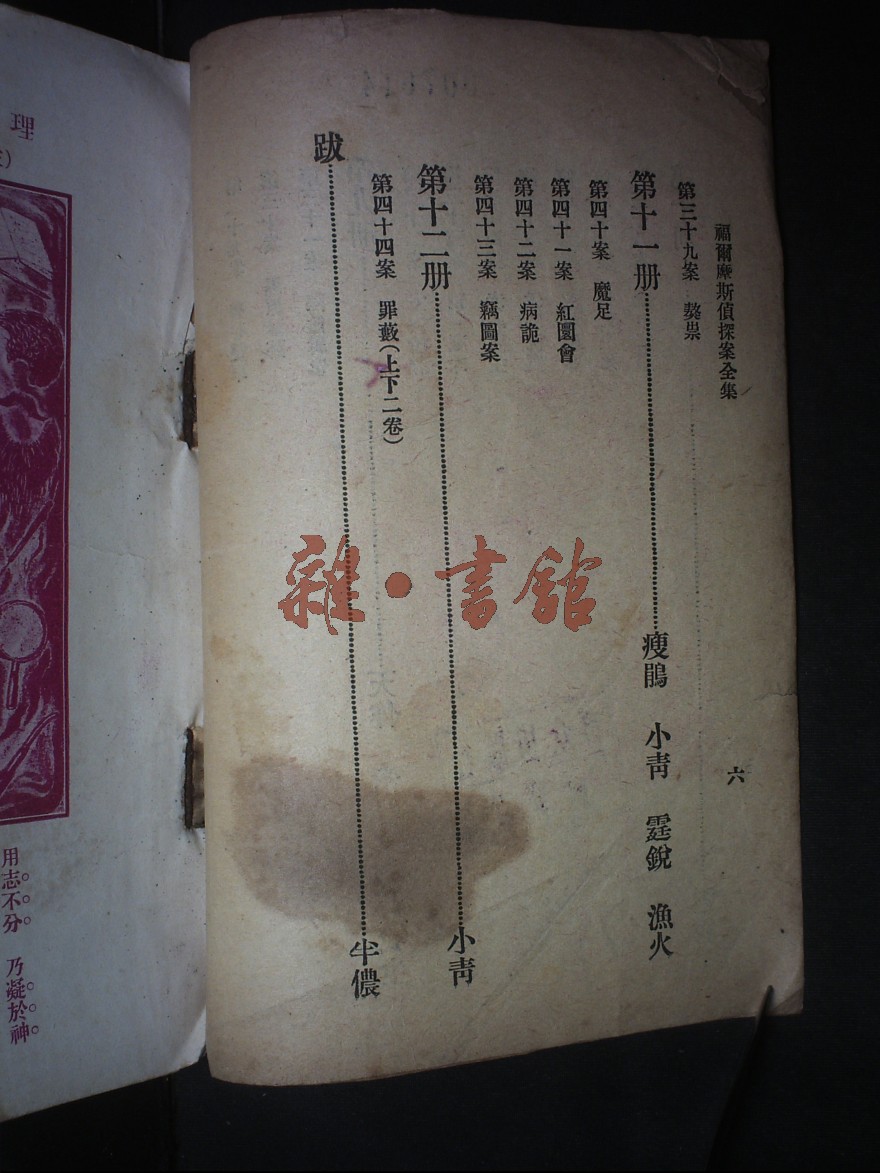 福爾摩斯偵探案全集
六
第三十九案　獒祟
第十一册……瘦鵑　小青　霆銳　漁火
第四十案　魔足
第四十一案　紅圜會
第四十二案　病詭
第四十三案　竊圖案
第十二册……小青
第四十四案　罪藪（上下二卷）
跋……半儂
雜・書館
理
用志不分。乃凝於神。